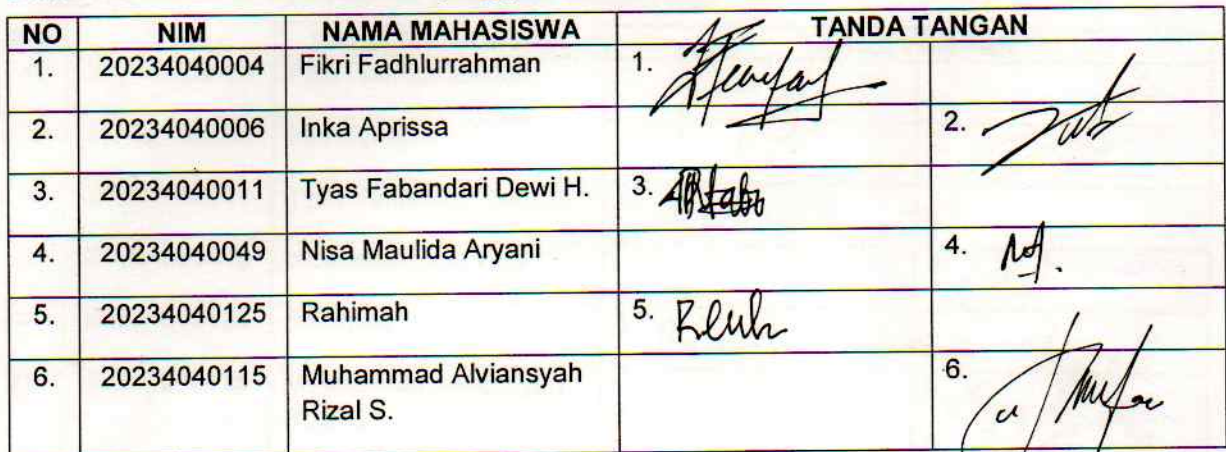 NO NIM NAMA MAHASISWA TANDA TANGAN
1. 20234040004 Fikri Fadhlurrahman 1.
2. 20234040006 Inka Aprissa 2.
3. 20234040011 Tyas Fabandari Dewi H. 3.
4. 20234040049 Nisa Maulida Aryani 4.
5. 20234040125 Rahimah 5.
6. 20234040115 Muhammad Alviansyah 6.
Rizal S.